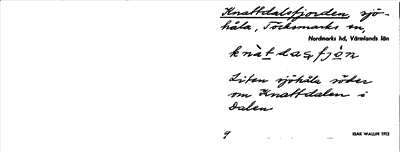 Knattdalsfjorden, sjö-
håla, Töcksmarks sn,
Nordmarks hd, Värmlands län
knàt da ʂ fjòn
Liten sjöhåla söder
om Knattdalen i
Dalen
9
ISAK WALLIN 1912